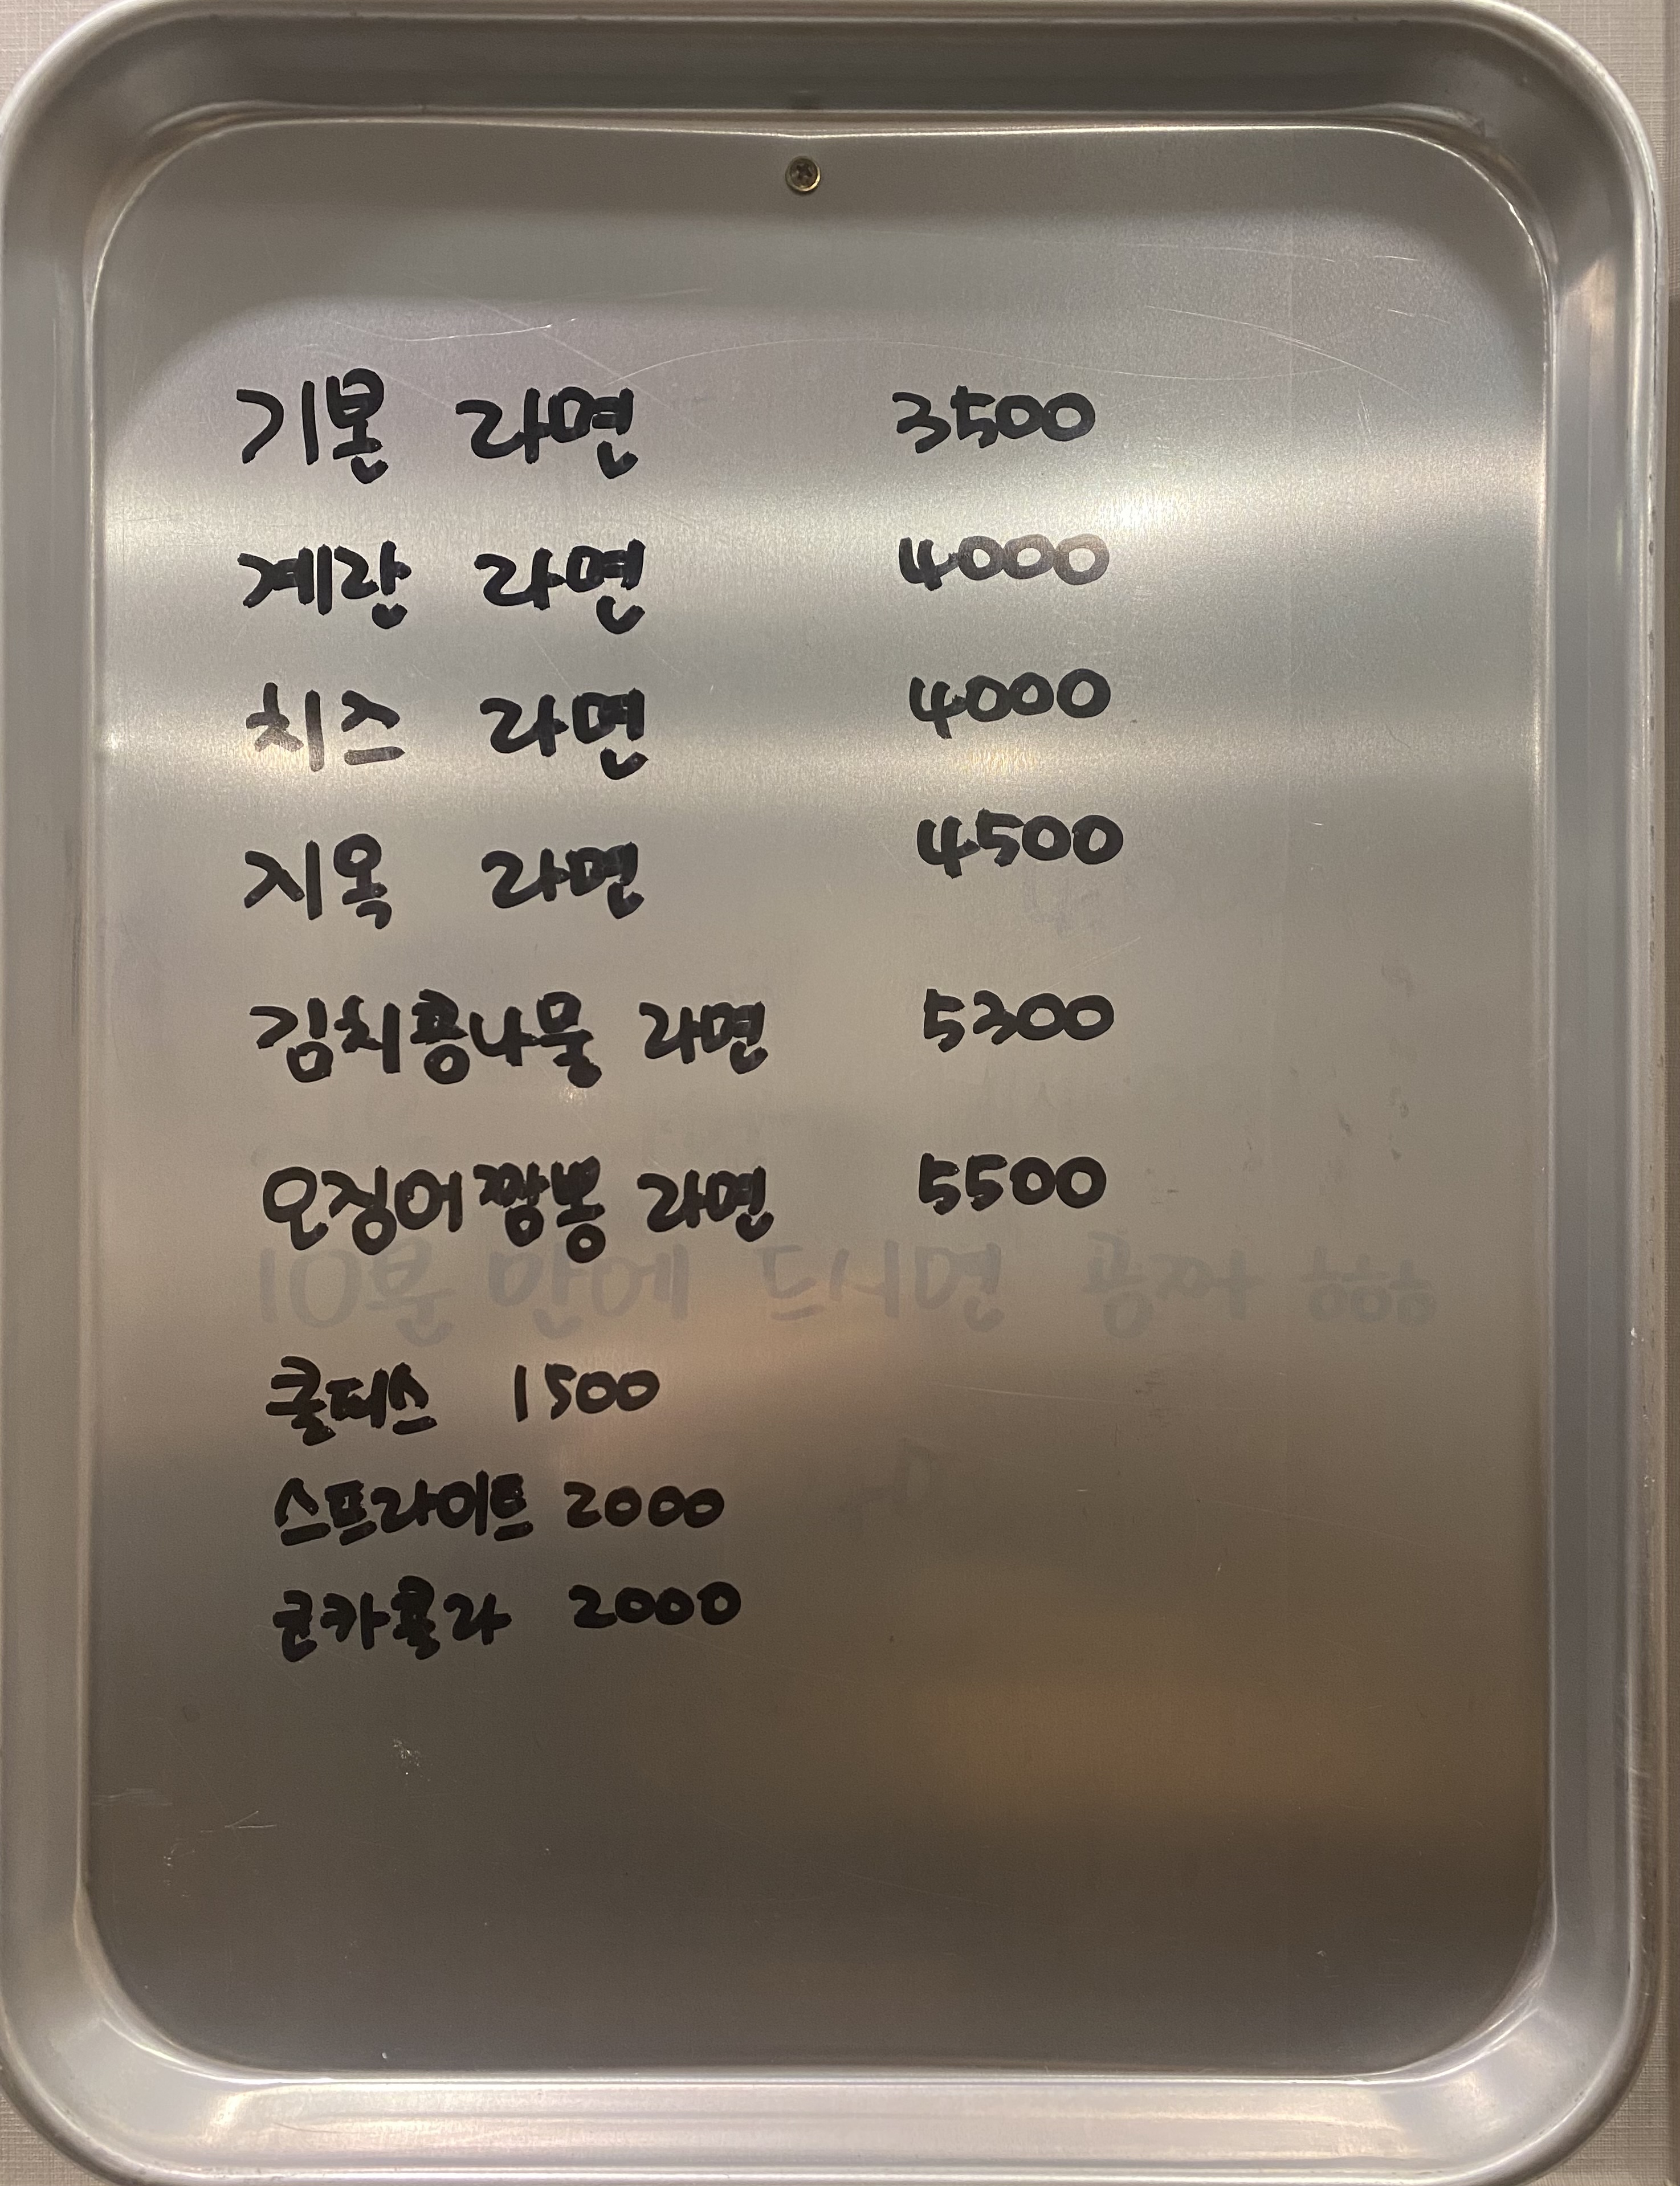 기본 라면 3500
계란 라면 4000
치즈 라면 4000
지옥 라면 4500
김치콩나물 라면 5300
오징어짬뽕 라면 5500
10분 안에 드시면 공짜 흠흠
쿨피스 1500
스프라이트 2000
코카콜라 2000